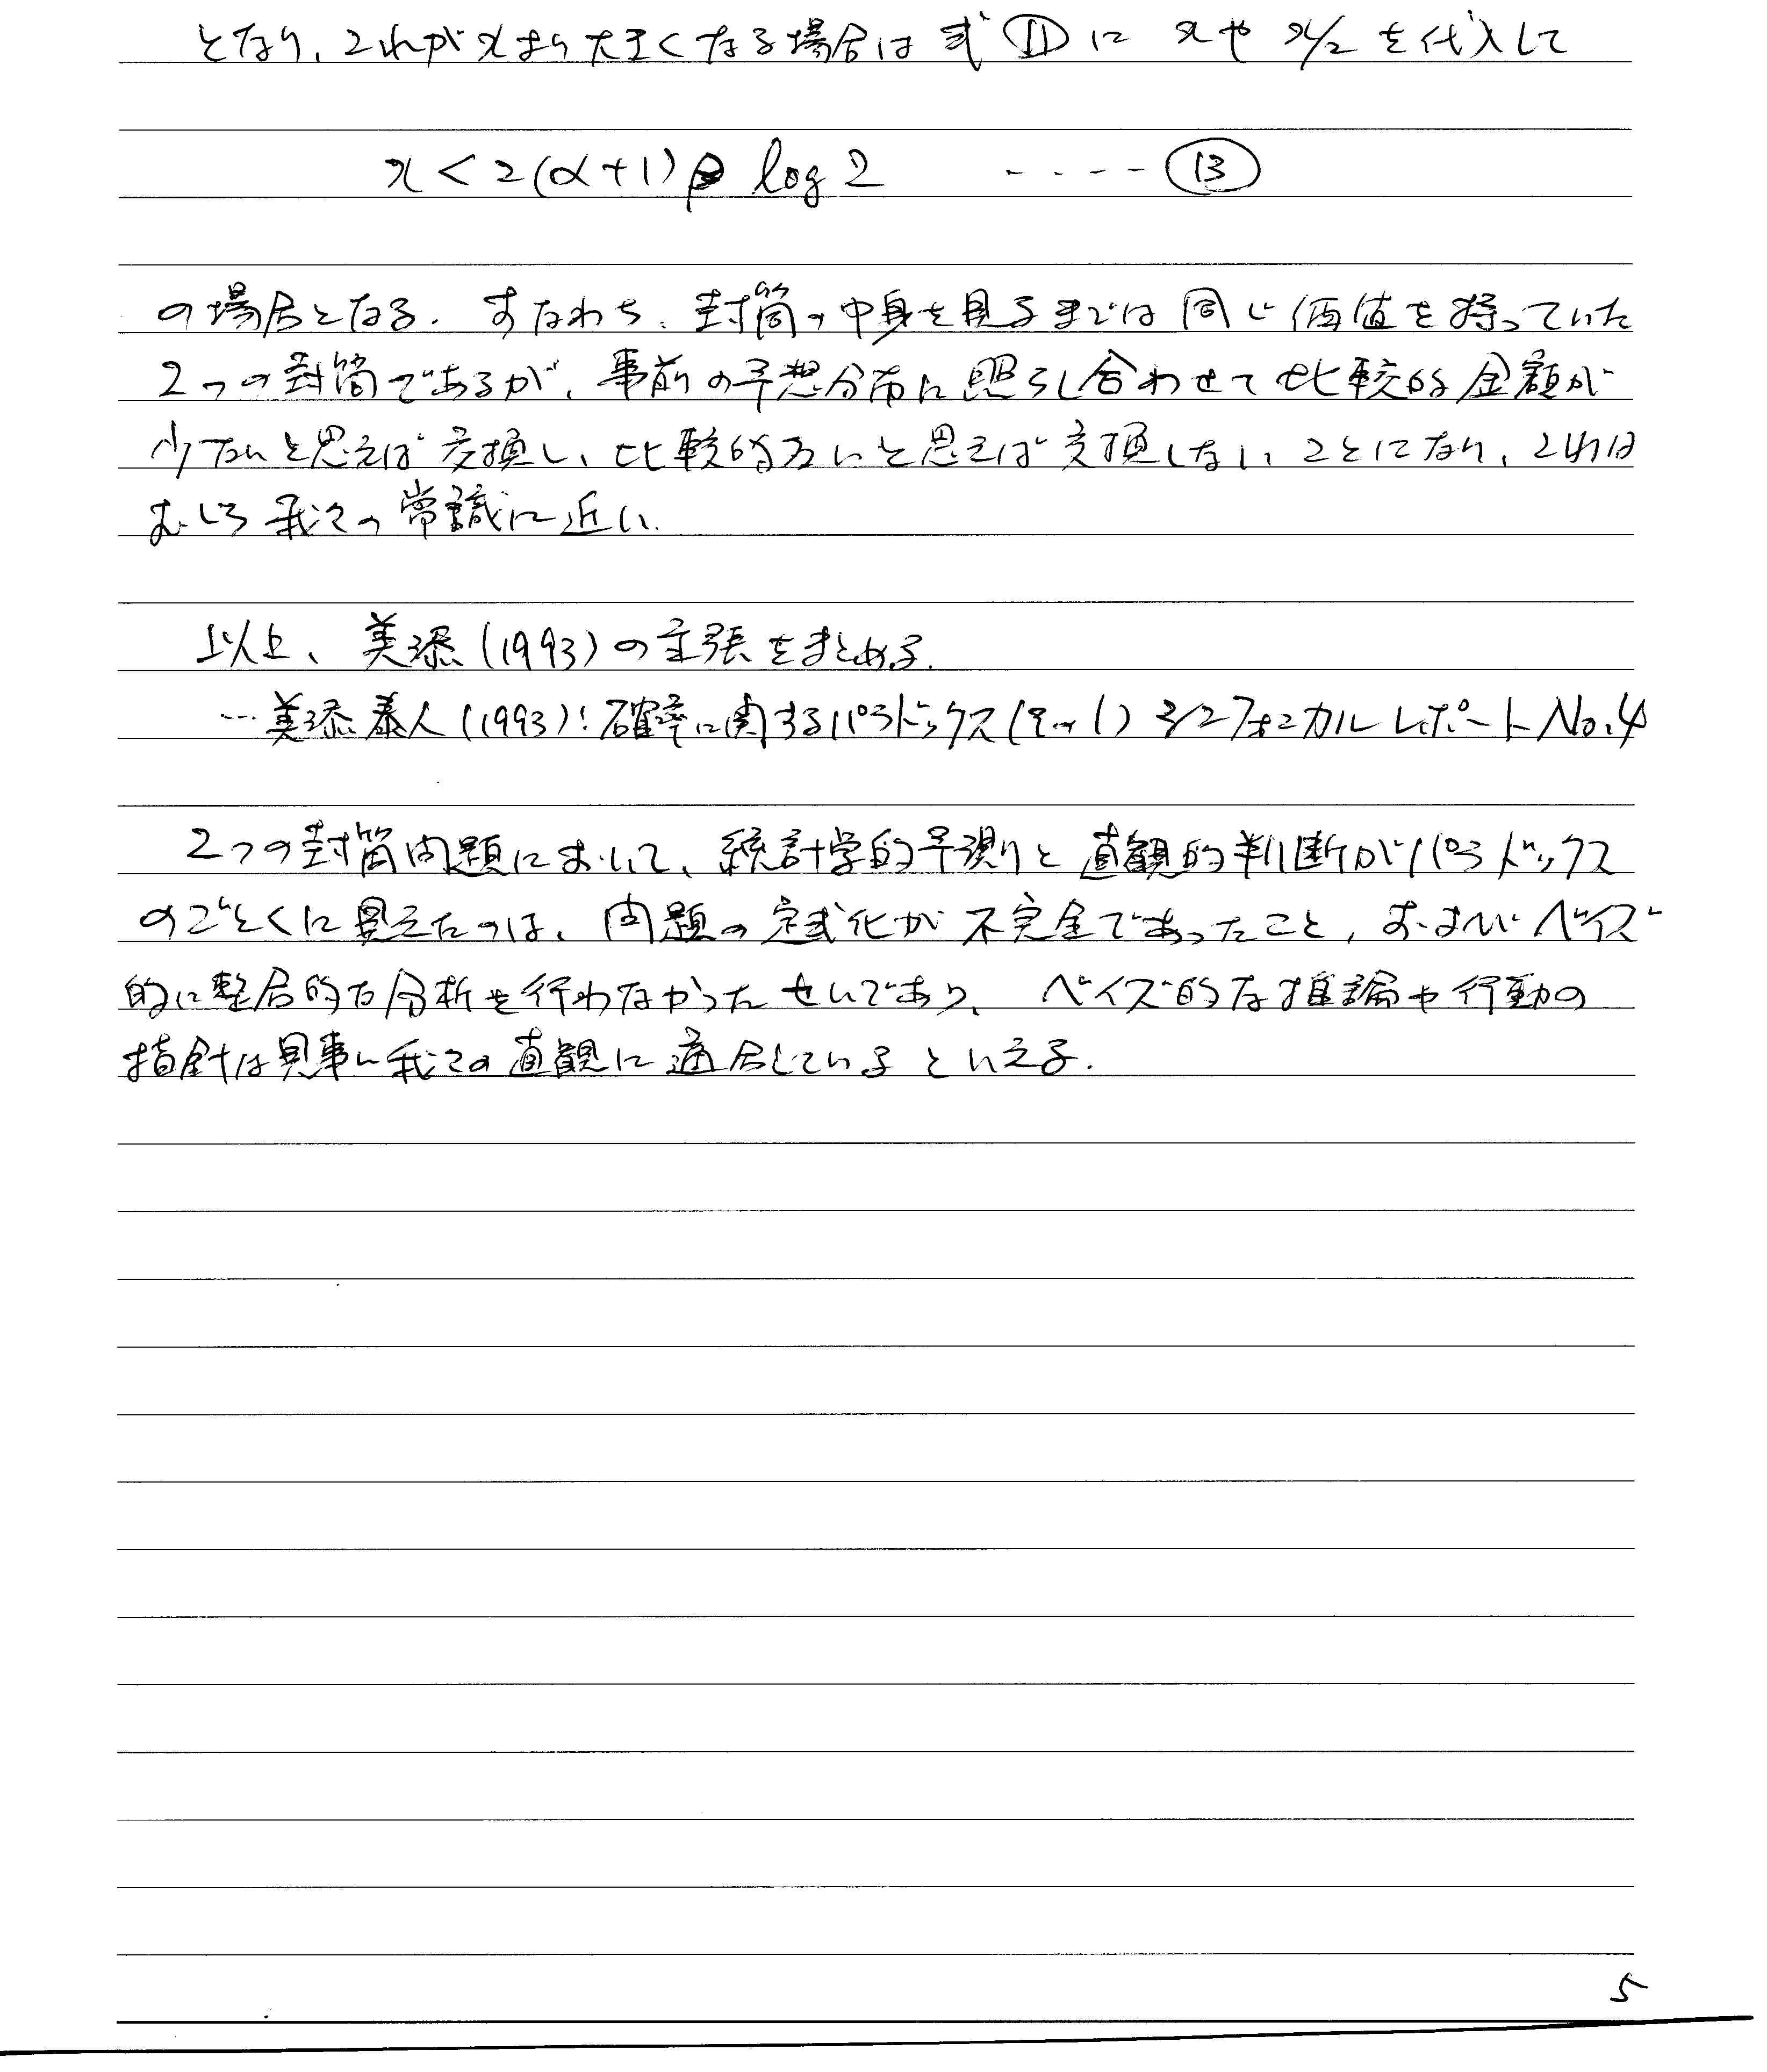 となり、これがxより大きくなる場合は式⑪にxやx/2を代入して
x < 2(α+1)β log 2 ----⑬
の場合となる. すなわち、封筒の中身を見るまでは同じ価値を持っていた
2つの封筒であるが、事前の予想分布に照らし合わせて比較的金額が
少ないと思えば交換し、比較的多いと思えば交換しないことになり、これは
むしろ我々の常識に近い.
以上、美添(1993)の主張をまとめる.
…美添泰人(1993):確率に関するパラドックス(その1) ミクロフォニカルレポートNo.4
2つの封筒問題において、統計学的予測と直観的判断がパラドックス
のごとくに見えたのは、問題の定式化が不完全であったこと、およびベイズ
的に整合的な分析を行わなかったせいであり、ベイズ的な推論や行動の
指針は見事に我々の直観に適合しているといえる.
5